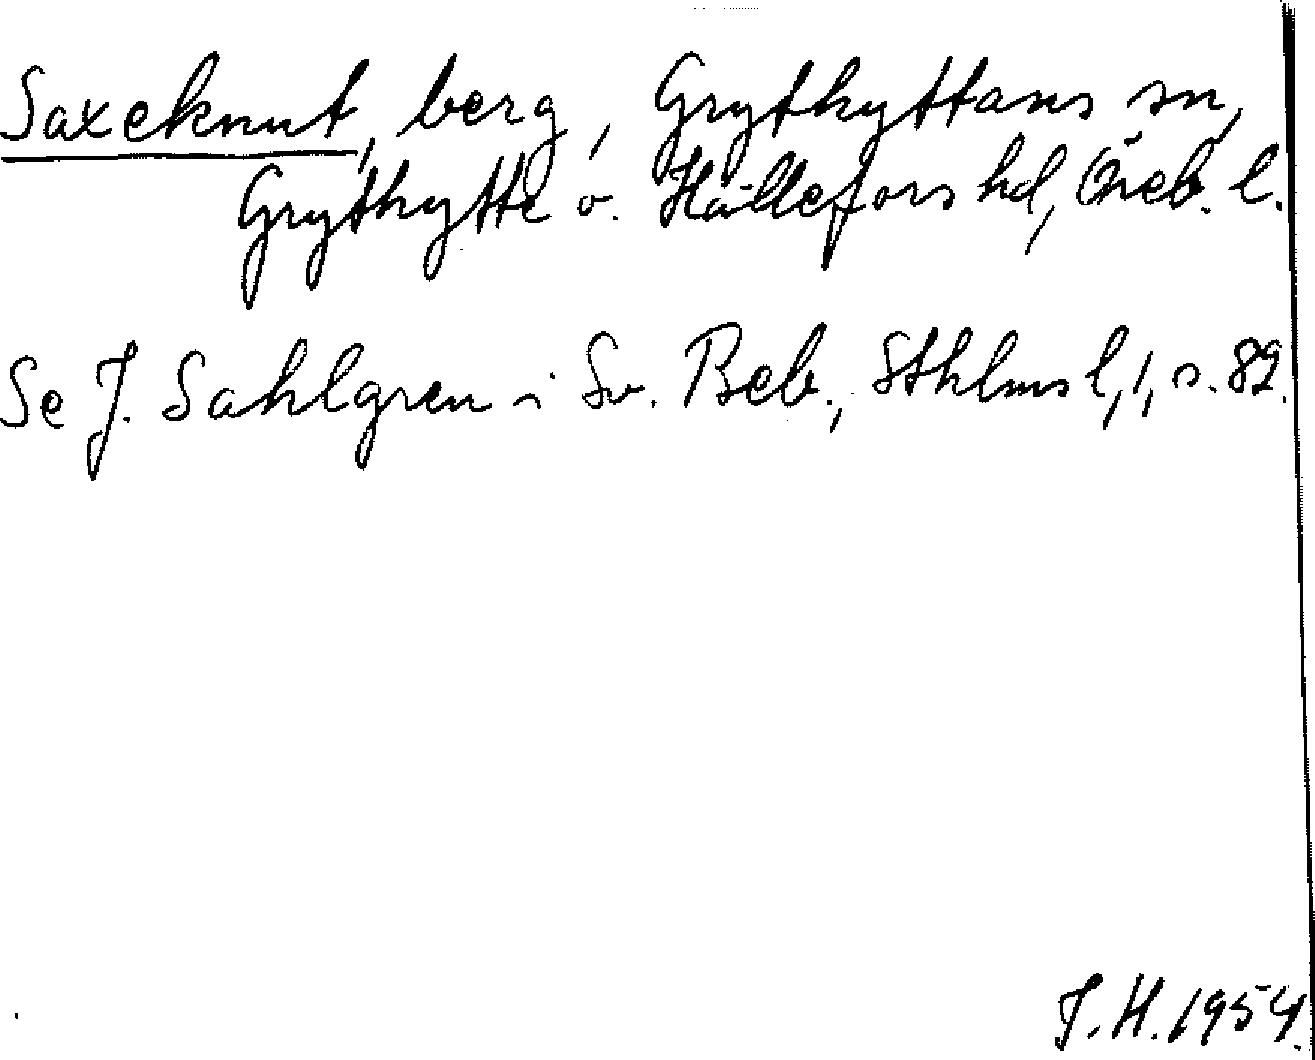 Saxeknut, berg, Grythyttans sn,
Grythytte o. Hällefors hd, Öreb. l.
Se J. Sahlgren i Sv. Beb., Sthlms l, 1, s. 82.
J. H. 1954.